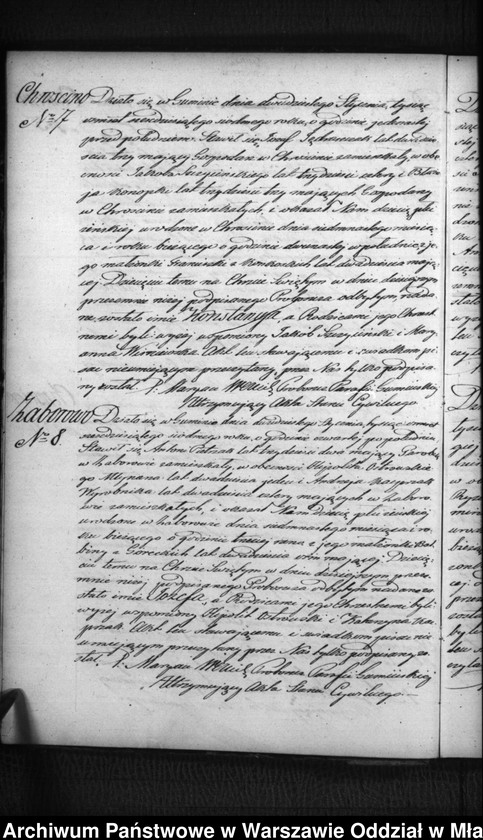 Chrościno
Nro 7
Działo się w Guminie dnia dwudziestego Stycznia, tysiąc
ośmset siódmego roku, o godzinie jedenastej
przed południem. Stawił się Jozef lat dwadzie-
ścia trzy mający Gospodarz w Chrościnie zamieszkały, w obe-
cności Jakoba Szczycińskiego lat trzydzieści cztery i Błaże-
ja Konopki lat trzydzieści trzy mających Gospodarzy
w Chrościnie zamieszkałych, i okazał Nam dziecię płci
żeńskiej urodzone w Chrościnie dnia siedmnastego miesią-
ca i roku bieżącego o godzinie dwunastej w południe z je-
go małżonki Franciszki z lat dwadzieścia mają-
cej. Dziecięciu temu na Chrzcie Świętym w dniu dzisiejszym
przezemnie niżej podpisanego Proboszcza odbytym, nada-
ne zostało imie Konstancya, a Rodzicami jego Chrzest-
nemi byli wyżej wspomniony Jakob Szczyciński i Mary-
anna Akt ten stawającemu i świadkom pi-
sać nieumiejącym przeczytany, przez Nas tylko podpisa-
ny został. X. Maryan Proboszcz Parafii Gumińskiej
Utrzymujący Akta Stanu Cywilnego
Zaborowo
Nro 8.
Działo się w Guminie dnia dwudziestego Stycznia, tysiąc ośmset
siódmego roku, o godzinie czwartej po południu
Stawił się Antoni lat trzydzieści dwa mający Parobek
w Zaborowie zamieszkały, w obecności Hipolita Ostrowskie-
go Młynarza lat dwadzieścia jeden i Andrzeja Kacprzak
Wyrobnika lat dwadzieścia cztery mających w Zaboro-
wie zamieszkałych, i okazał Nam dziecię płci żeńskiej
urodzone w Zaborowie dnia siedmnastego miesiąca i ro-
ku bieżącego o godzinie trzeciej rano z jego małżonki Bal-
biny z Goreckich lat dwadzieścia ośm mającej. Dziecię-
ciu temu na Chrzcie Świętym w dniu dzisiejszym przeze-
mnie niżej podpisanego Proboszcza odbytym nadane zo-
stało imie Jozefa, a Rodzicami jego Chrzestnemi byli
wyżej wspomniony Hipolit Ostrowski i Katarzyna Ka-
cprzak. Akt ten stawającemu i świadkom pisać nie
umiejącym przeczytany przez Nas tylko podpisany zo-
stał. X. Maryan Proboszcz Parafii Gumińskiej
Utrzymujący Akta Stanu Cywilnego
Archiwum Państwowe w Warszawie Oddział w Mła